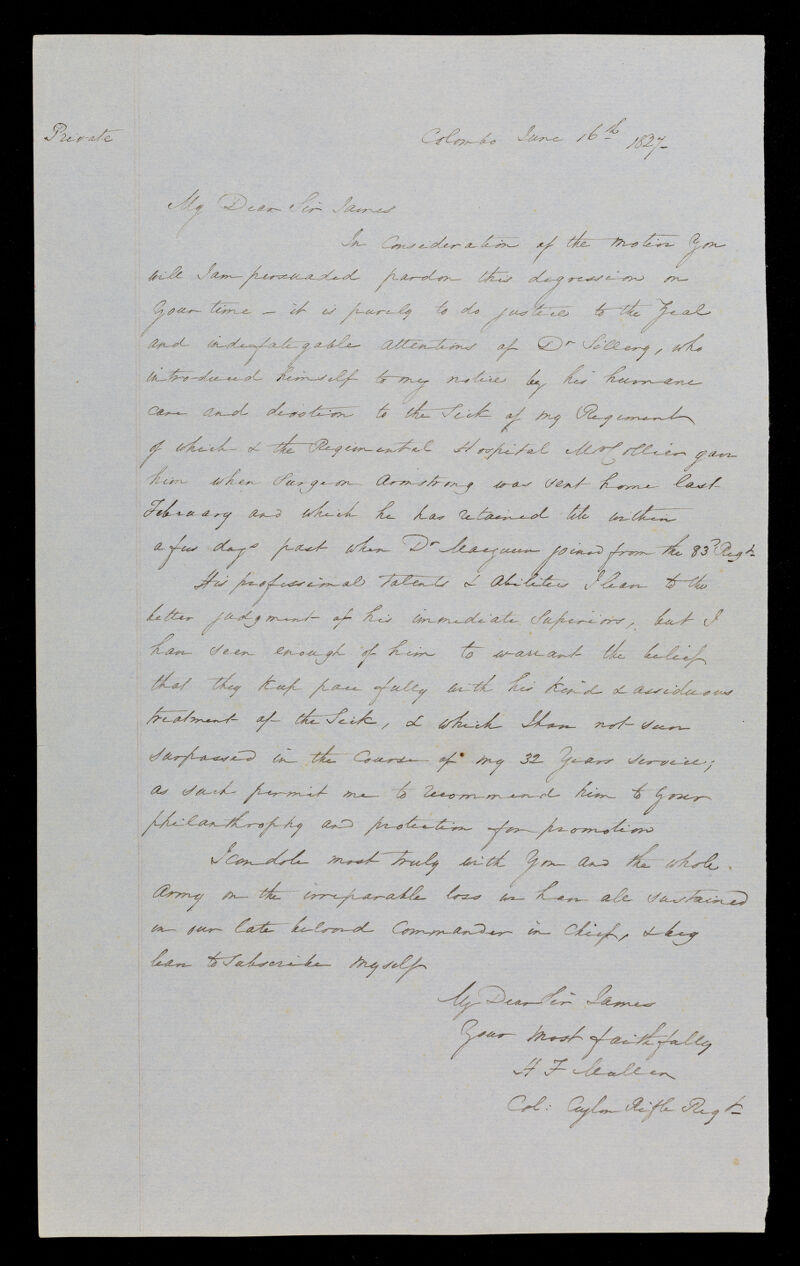 Private
Colombo June 16th 1827
My Dear Sir James
In Consideration of the motive You
will I am persuaded pardon this digression on
Your time – it is purely to do justice to the Zeal
and indefatigable attentions of Dr Sillery, who
introduced himself to my notice by his humane
care and devotion to the Sick of my Regiment
of which & the Regimental Hospital Mr Collier gave
him when Surgeon Armstrong was sent home last
February and which he has retained till within
a few days past when Dr joined from the 83d Regt
His professional talents & Abilities I leave to the
better judgment of his immediate Superiors, but I
have seen enough of him to warrant the belief
that they keep pace fully with his kind & assiduous
treatment of the Sick, & which I have not seen
surpassed in the Course of my 32 Years service;
as such permit me to recommend him to Your
philanthrophy and protection for promotion
I condole most truly with You and the whole
Army on the irreparable loss we have all sustained
in our late beloved Commander in Chief, & beg
leave to Subscribe Myself
My Dear Sir James
Your most faithfully
H F Muller
Col: Ceylon Rifle Regt